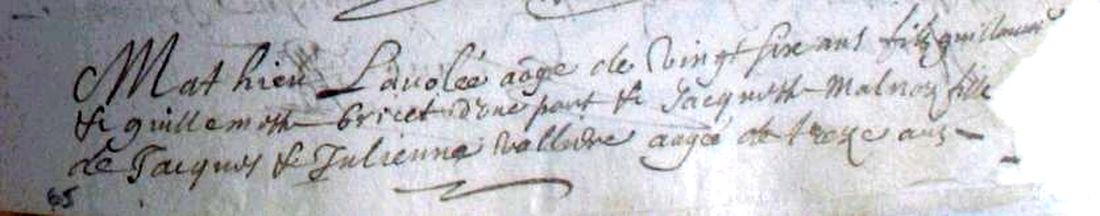 Mathieu Lavolée aage de vingt six ans fils guillaume
& guillemette Bricet d'une part & Jacquette Malnoy fille
de Jacques & Julienne Valleive aagée de treze ans
65